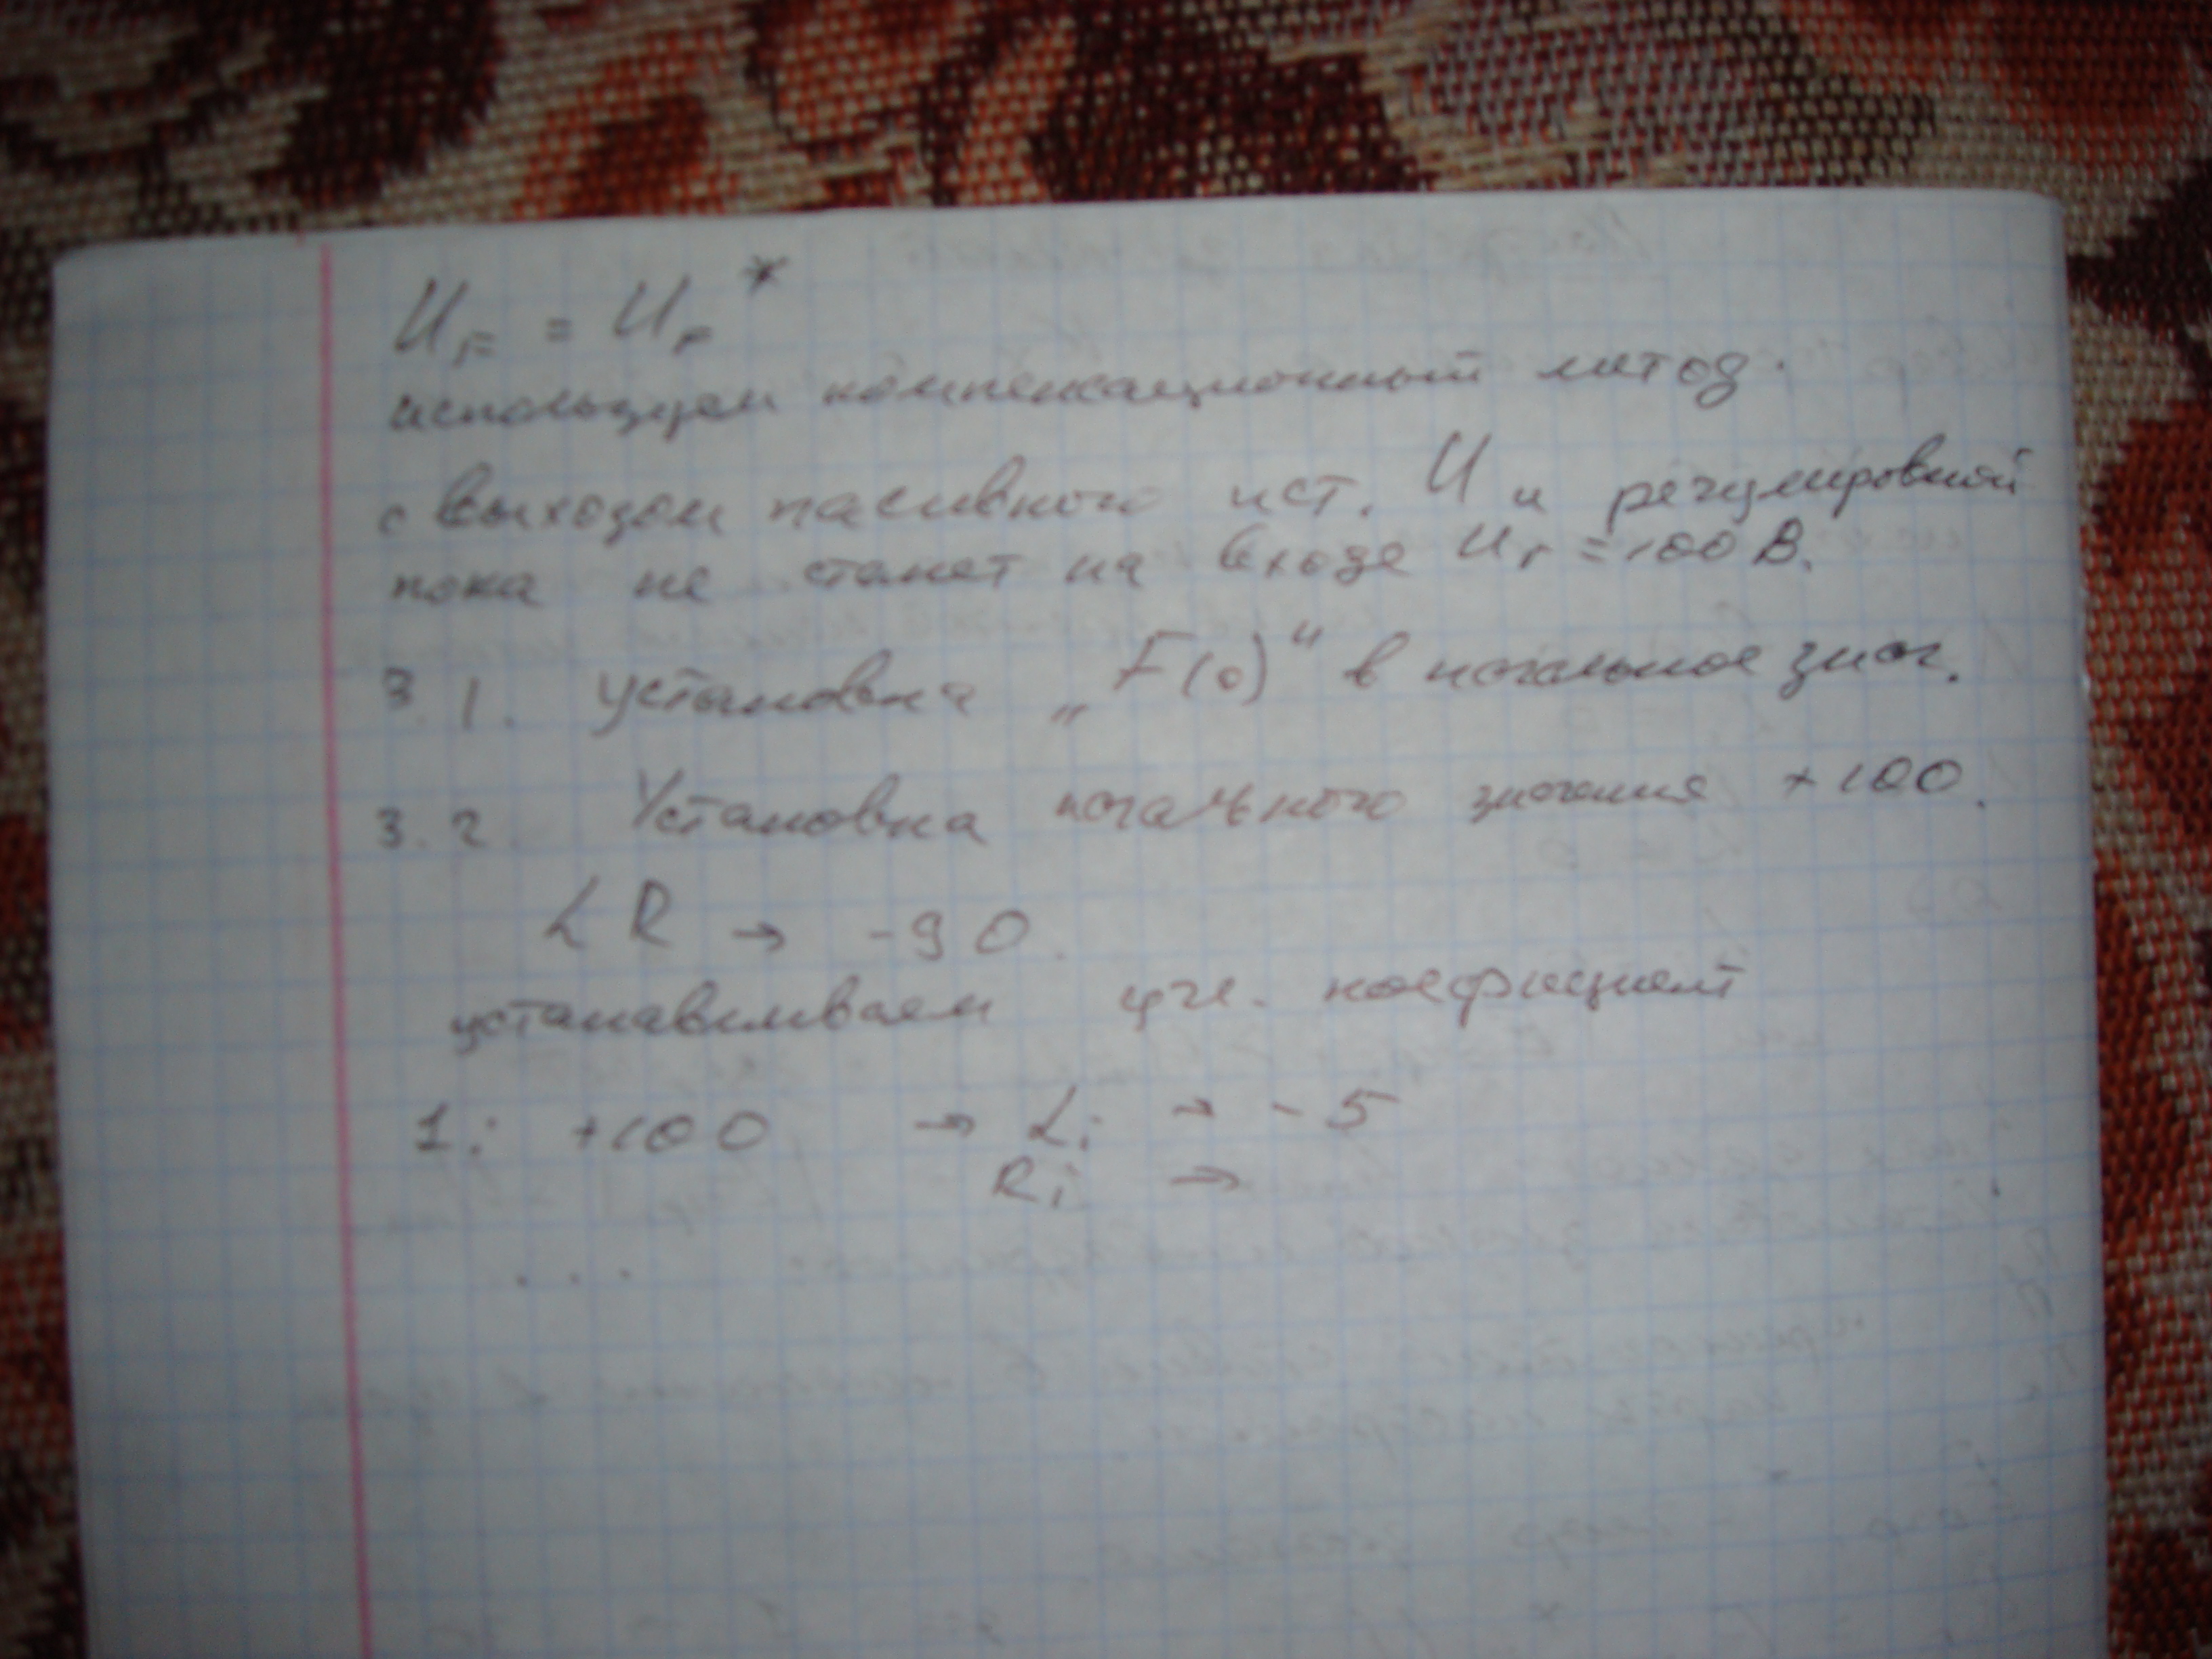 U г = U г *
используем компенсационный метод.
с выходом пасивного ист. U и регулировкой
пока не станет на входе U г = 100 В.
3.1. Установка „F(0)“ в начальное знач.
3.2. Установка начального значения +100.
LR → -90.
устанавливаем коефициент
1: +100 → Li → -5
Ri →
...